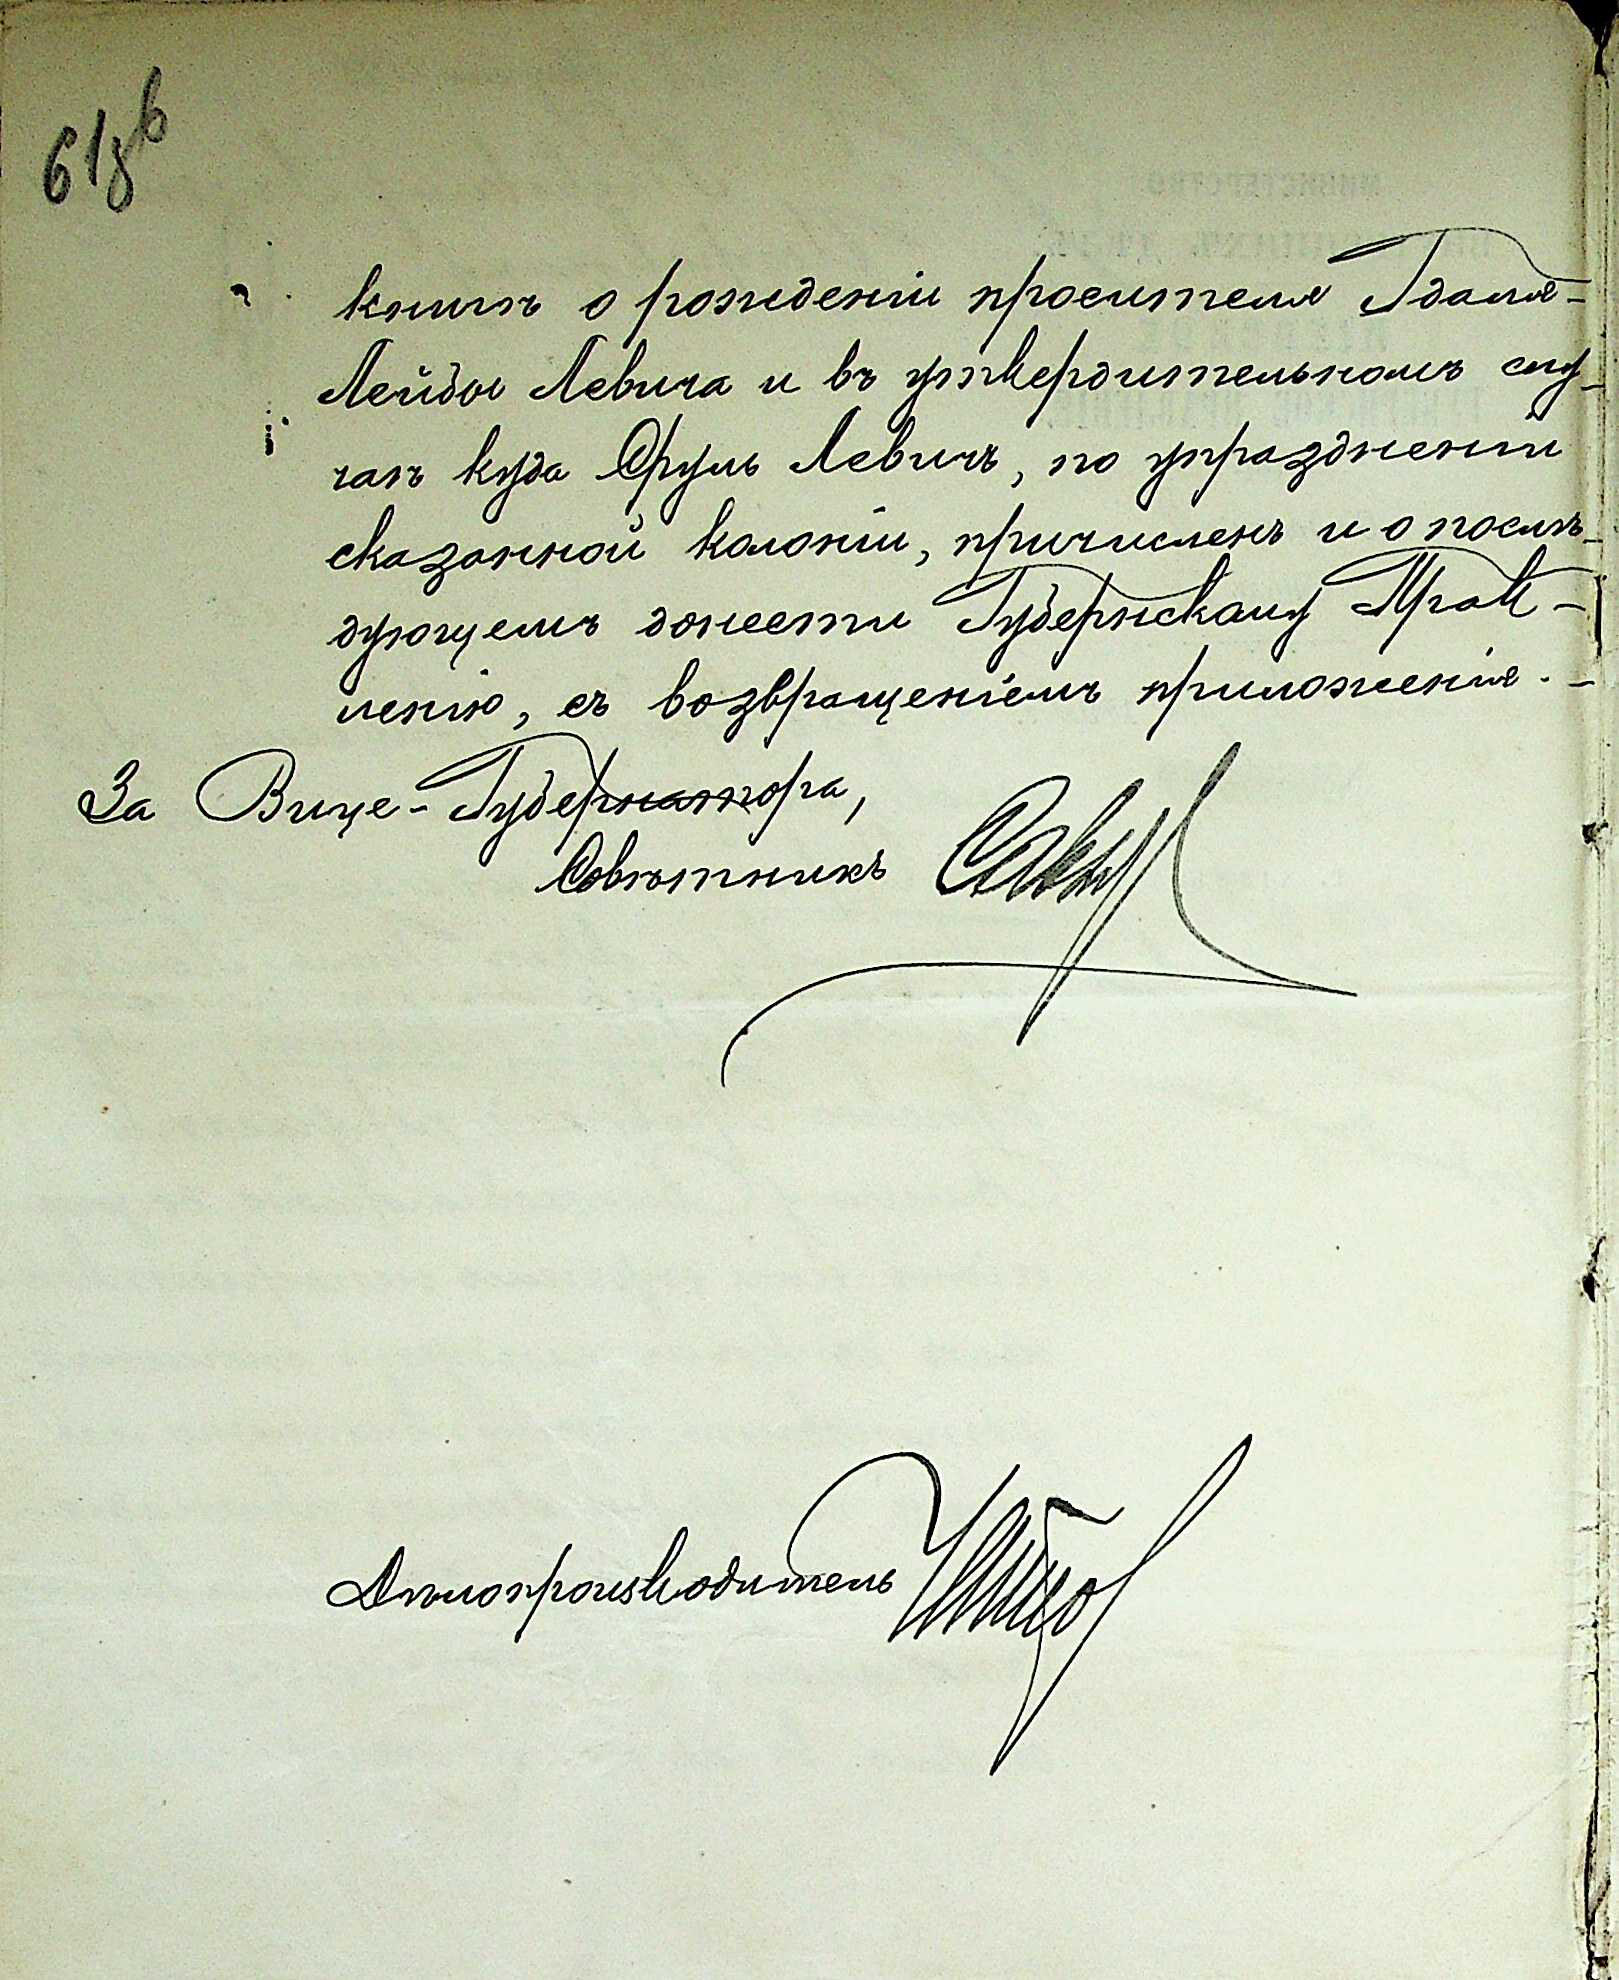 618 в
книгѣ о рожденіи просителя Гдаля-
Лейбы Левича и въ утвердительномъ слу-
чаѣ куда Сруль Левичъ, по упраздненіи
сказанной колоніи, причисленъ и о послѣ-
дующемъ донести Губернскому Прав-
ленію, съ возвращеніемъ приложенія.-
За Вице-Губернатора,
Совѣтникъ
Дѣлопроизводитель